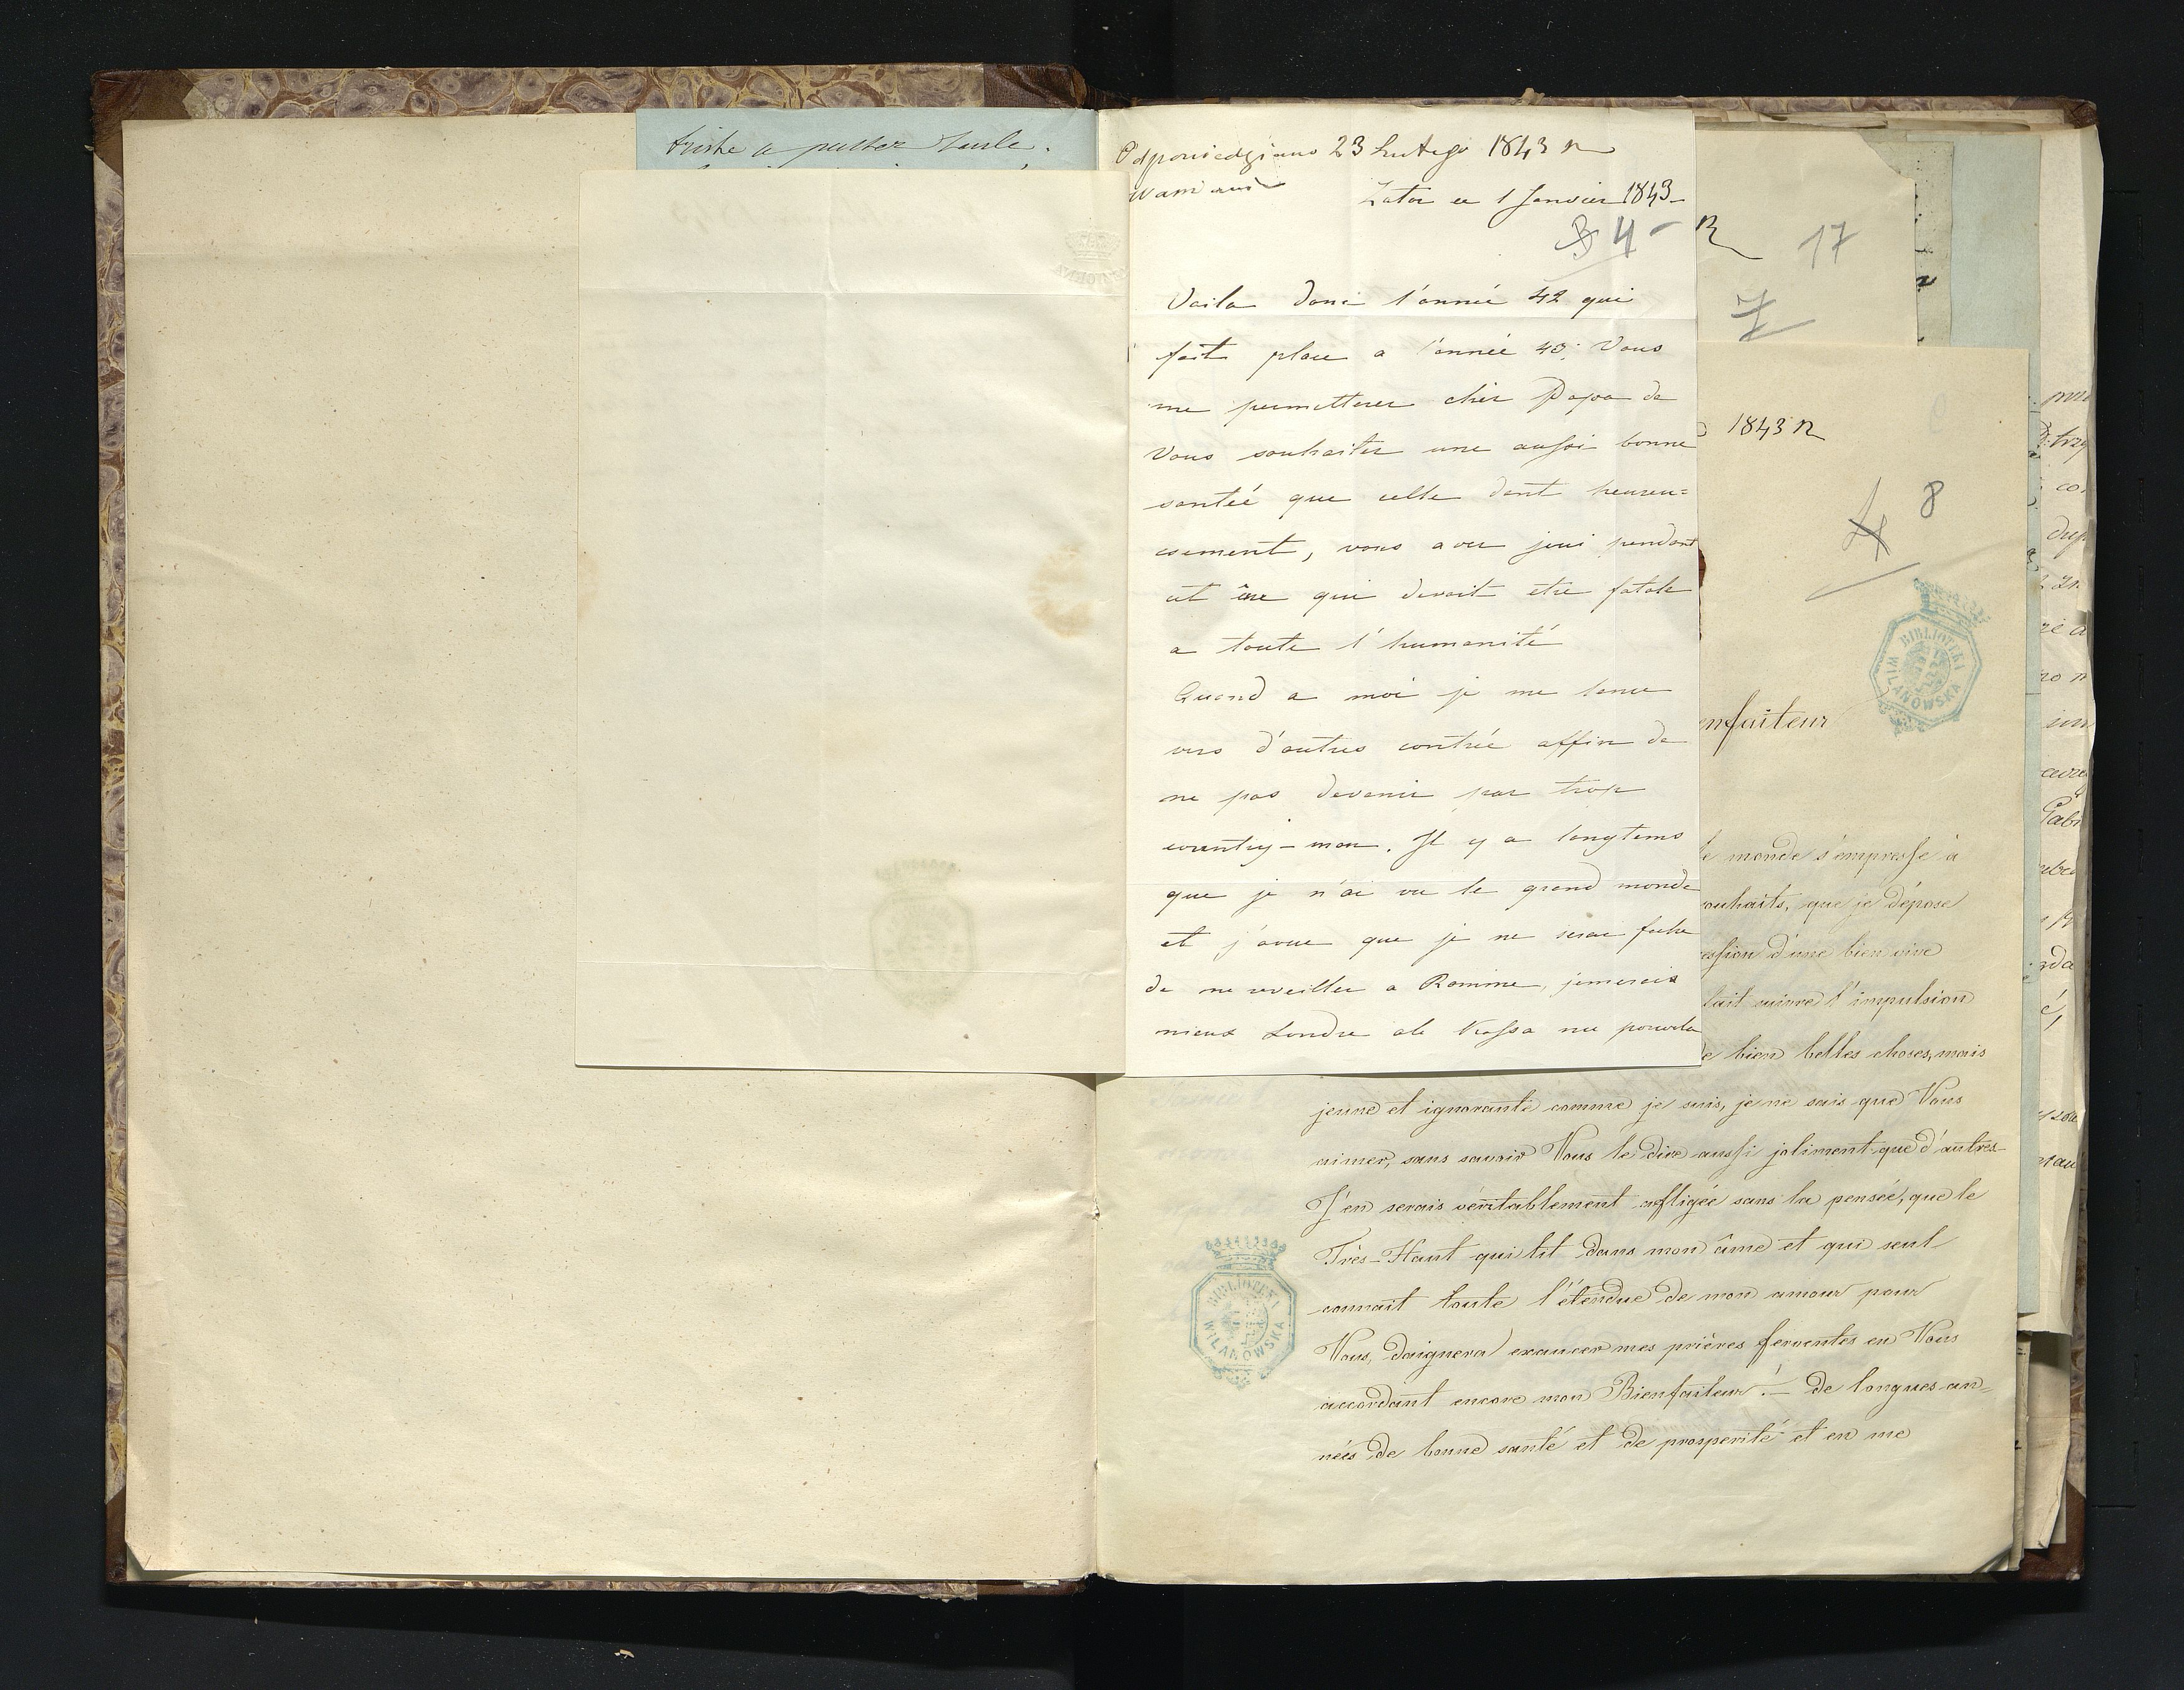 triste a passer seule.
Odpowiedziano 23 Lutego 1843 R
Zator ce 1 Janvier 1843
3 4
Voila donc l'année 42 qui
fait place a l'année 43. Vous
me permetterez cher Papa de
Vous souhaiter une aussi bonne
santeé que celle dont heureu=
esement, vous avez joui pendant
cet ere qui devait etre fatale
a toute l'humanité
Quand a moi je me lance
vers d'autres contrée affin de
ne pas devenir par trop
country-man. Il y a longtems
que je n'ai vu le grand monde
et j'avue que je ne serai fache
de me reveiller a Romme, j'emerais
mieux Londre ale Kassa nie pozwola
R 17
7
1843 R
4 8
BIBLIOTEKA WILANOWSKA
nfaiteur
le monde s'empresse à
souhaits, que je dépose
ression d'une bien vive
lait suivre l'impulsion
de bien belles choses, mais
jeune et ignorante comme je suis, je ne sais que Vous
aimer, sans savoir Vous le dire aussi joliment que d'autres
J'en serais véritablement affligée sans la pensée, que le
Très-Haut qui lit dans mon âme et qui seul
connait toute l'étendue de mon amour pour
Vous, daignera exaucer mes prières ferventes en Vous
accordant encore mon Bienfaiteur! – de longues an=
nées de bonne santé et de prosperité et en me
BIBLIOTEKA WILANOWSKA